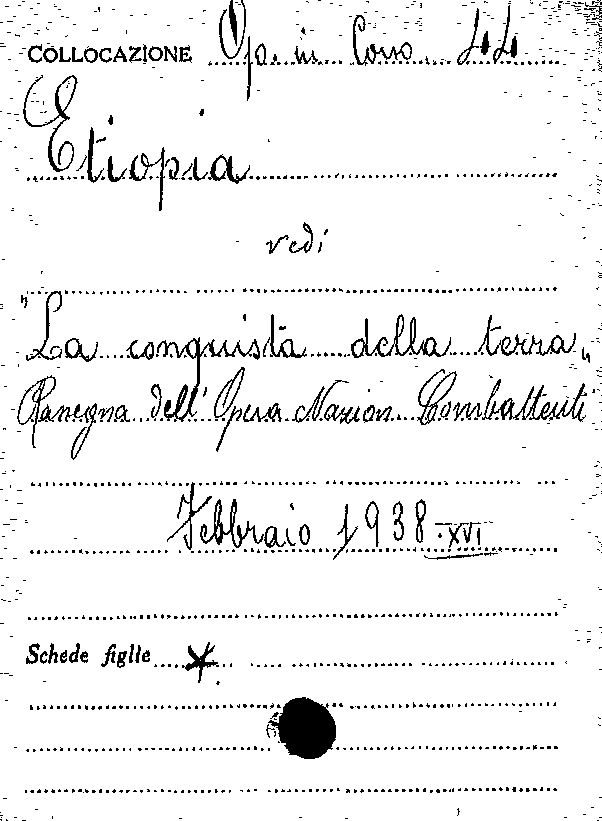 COLLOCAZIONE Op. in Corso 44
Etiopia
vedi
"La conquista della terra"
Rassegna dell'Opera Nazion. Combattenti
Febbraio 1938-XVI
Schede figlie